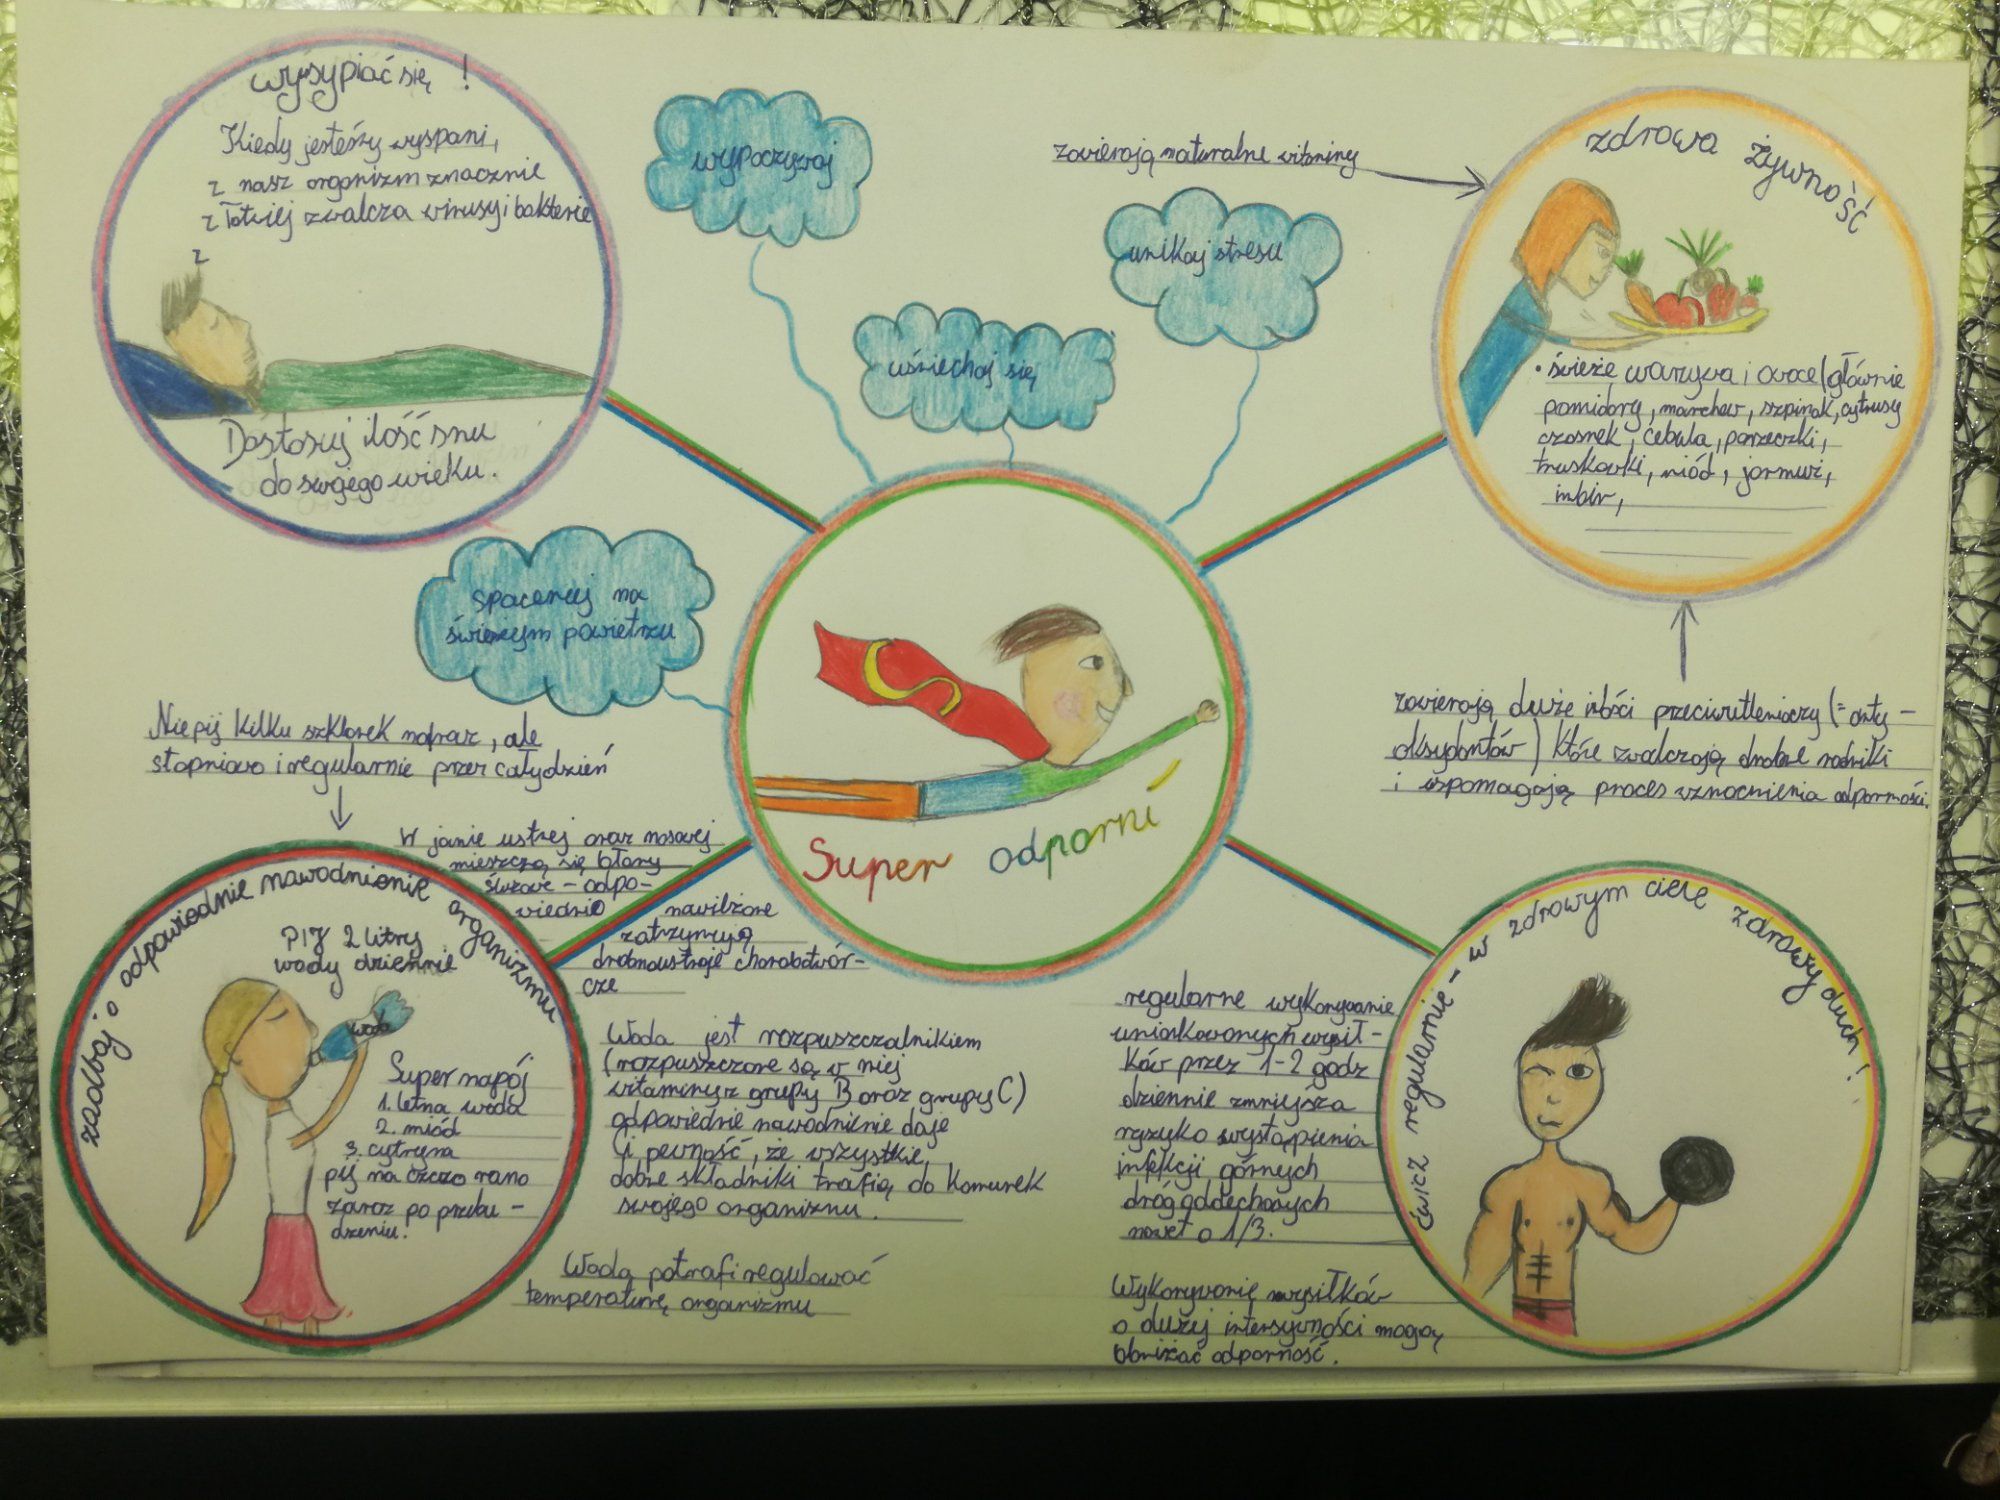 wysypiać się !
Kiedy jesteśmy wyspani,
z nasz organizm znacznie
z łatwiej zwalcza wirusy i bakterie
z
Dostosuj ilość snu
do swojego wieku.
wypoczywaj
unikaj stresu
uśmiechaj się
spaceruj na
świeżym powietrzu
zawierają naturalne witaminy
zdrowa żywność
• świeże warzywa i owoce (głównie
pomidory, marchew, szpinak, cytrusy
czosnek, cebula, porzeczki,
truskawki, miód, jarmuż,
imbir,
zawierają duże ilości przeciwutleniaczy (= anty-
oksydantów) które zwalczają drobne rodniki
i wspomagają proces wzmocnienia odporności.
Super odporni
Nie pij kilku szklanek naraz, ale
stopniowo i regularnie przez cały dzień
W jamie ustnej oraz nosowej
mieszczą się błony
śluzowe - odpo-
wiednio nawilżone
zatrzymują
drobnoustroje chorobotwór-
cze
zadbaj o odpowiednie nawodnienie organizmu
PIJ 2 litry
wody dziennie
woda
Super napój
1. letna woda
2. miód
3. cytryna
pij na czczo rano
zaraz po przebu-
dzeniu!
Woda jest rozpuszczalnikiem
(rozpuszczone są w niej
witaminy z grupy B oraz grupy C)
odpowiednie nawodnienie daje
Ci pewność, że wszystkie
dobre składniki trafią do komurek
swojego organizmu.
Woda potrafi regulować
temperaturę organizmu
regularne wykonywanie
umiarkowanych wysił-
ków przez 1-2 godz
dziennie zmniejsza
ryzyko wystąpienia
infekcji górnych
dróg oddechowych
nawet o 1/3.
Wykonywanie wysiłków
o dużej intensywności mogą
obniżać odporność.
ćwicz regularnie - w zdrowym ciele zdrowy duch!